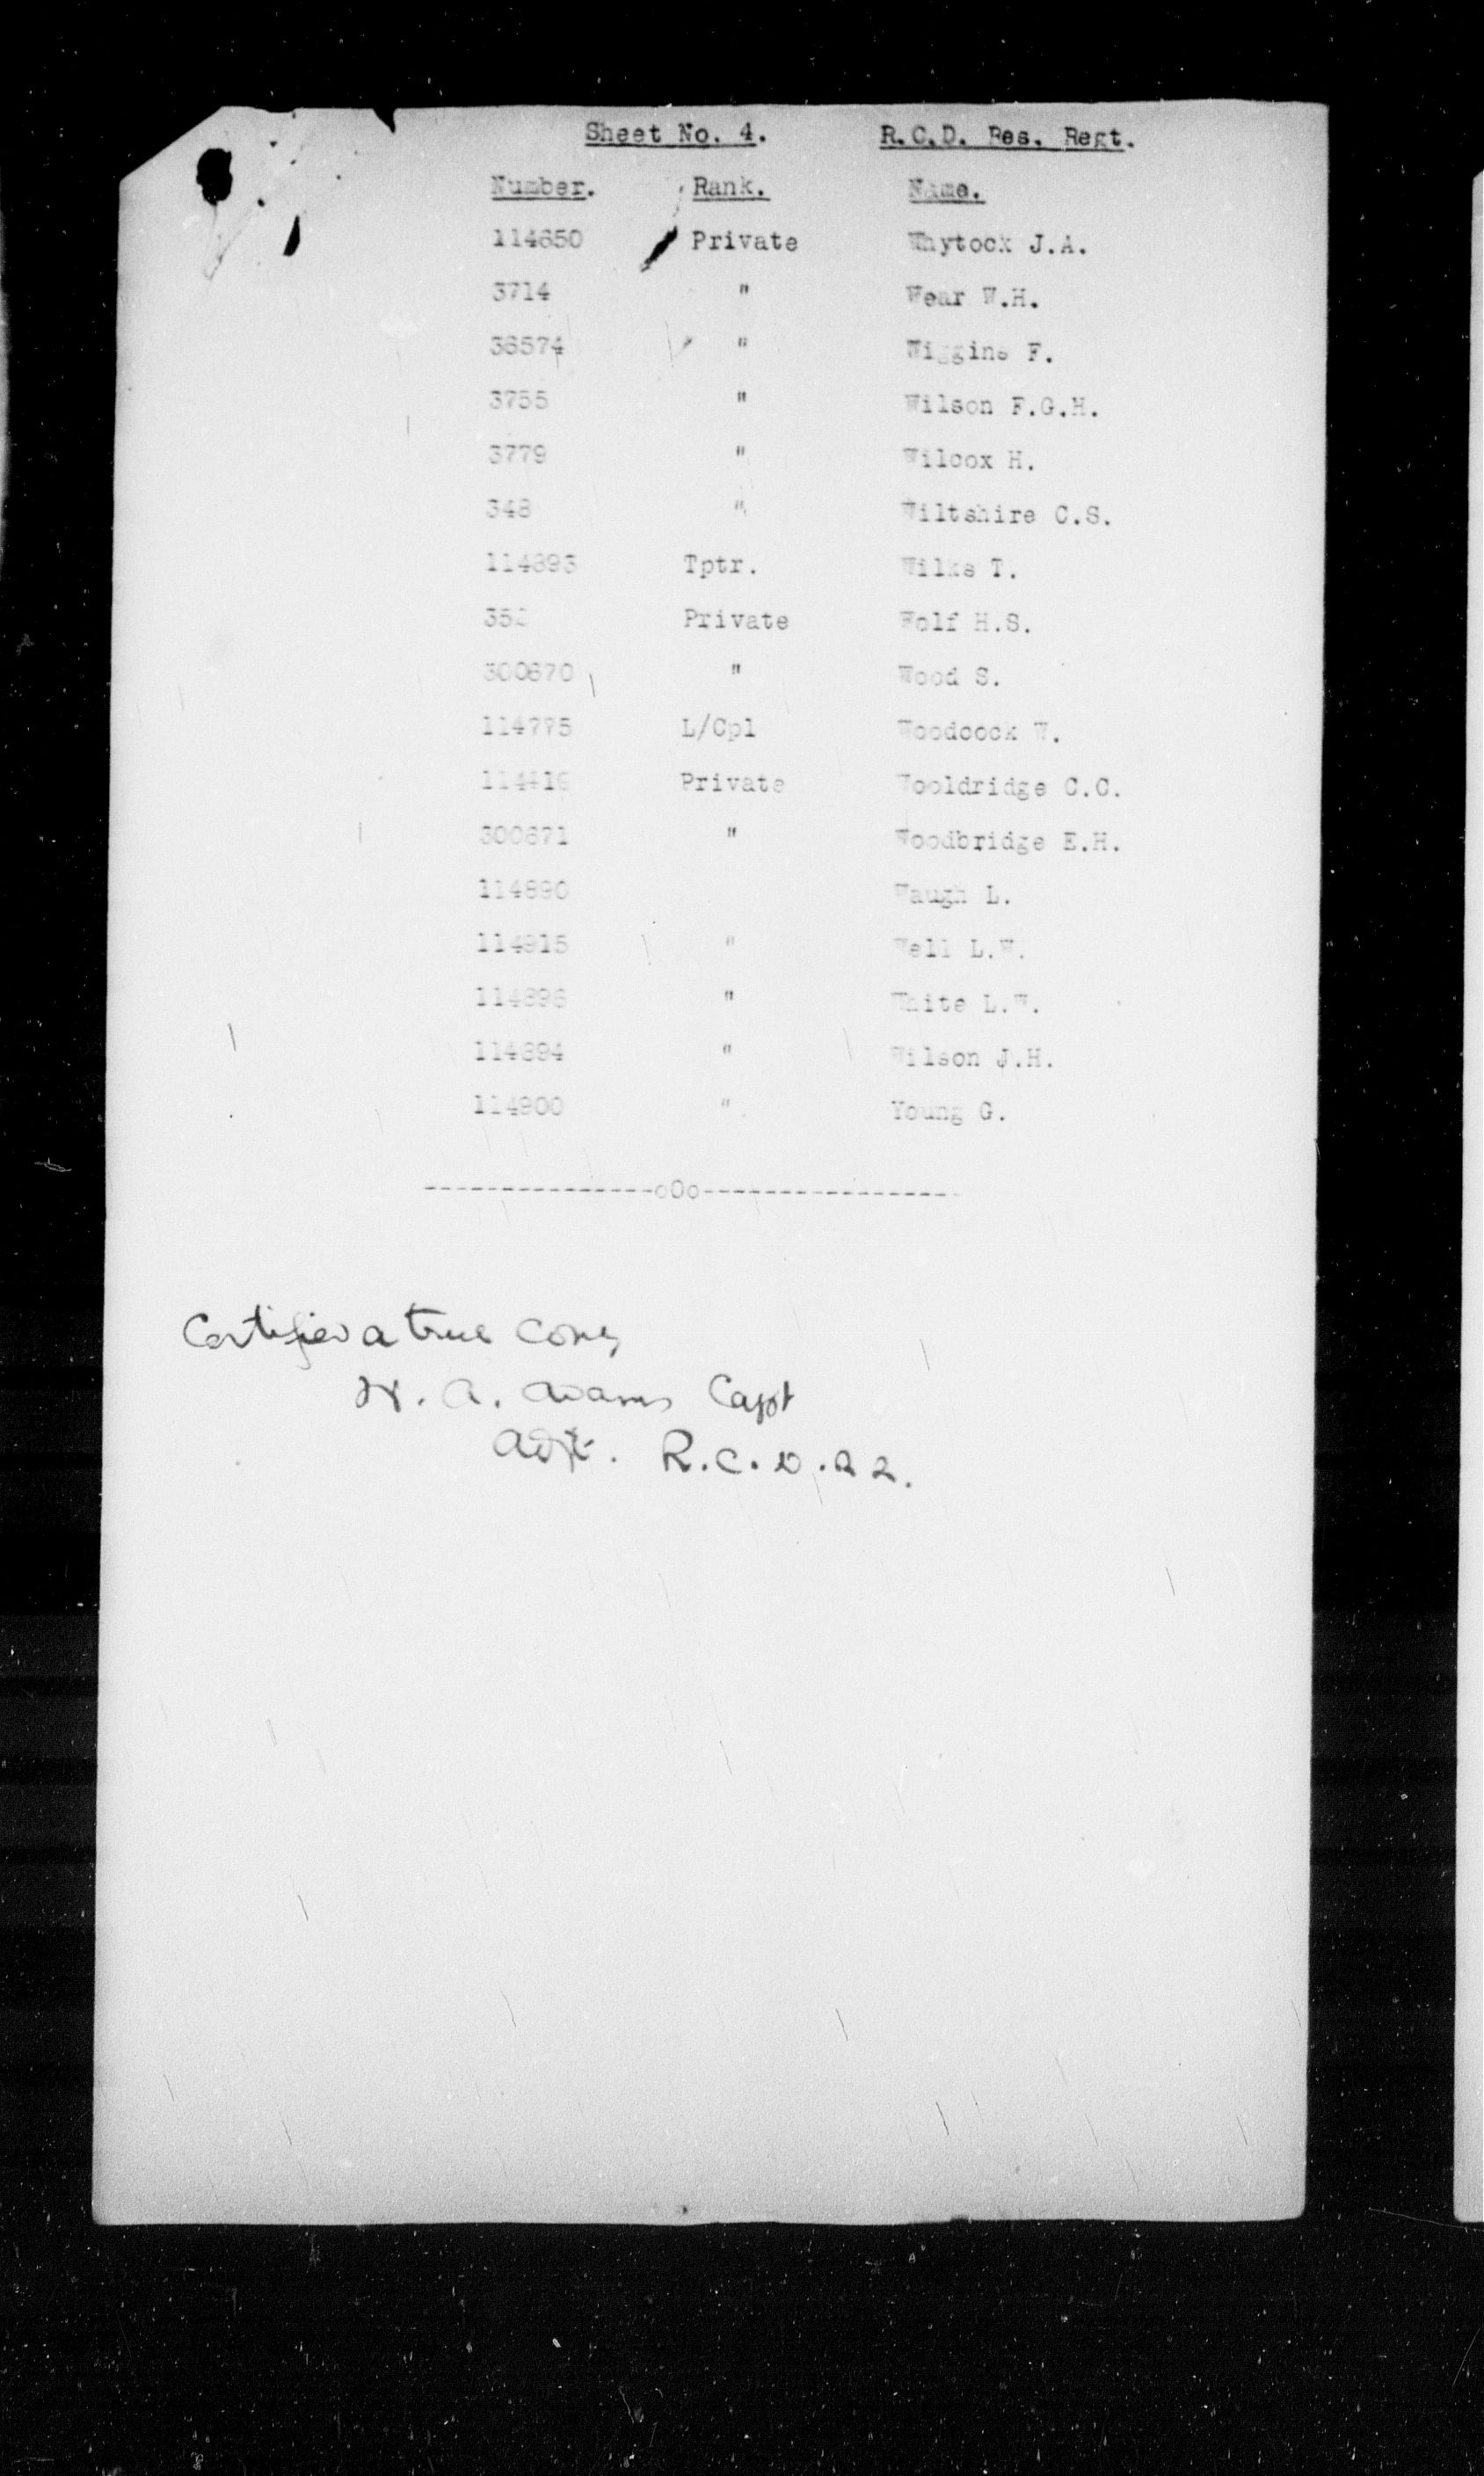 Sheet No. 4. R.C.D. Res. Regt.
Number. Rank. Name.
114650 Private Whytock J.A.
3714 " Wear W.H.
36574 " Wiggins F.
3755 " Wilson F.G.H.
3779 " Wilcox H.
348 " Wiltshire C.S.
114893 Tptr. Wilks T.
Private Wolf H.S.
300670 " Wood S.
114775 L/Cpl Woodcock W.
Private Wooldridge C.C.
300671 " Woodbridge E.H.
114890 Waugh L.
114915 " Well L.W.
114896 " White L.W.
114894 " Wilson J.H.
114900 " Young G.
---------------oOo-----------------
Certified a true Copy
H. A. Adams Capt
Adjt. R.C.D.